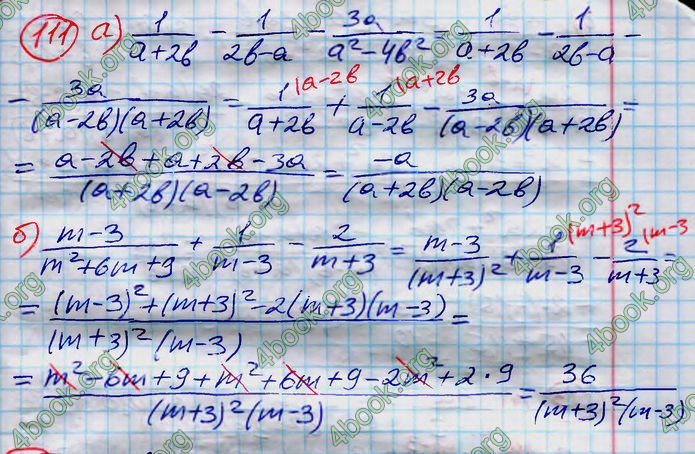 111 а) 1/(a+2b) - 1/(2b-a) - 3a/(a²-4b²) = 1/(a+2b) - 1/(2b-a) -
- 3a/((a-2b)(a+2b)) = 1/(a+2b) |a-2b + 1/(a-2b) |a+2b - 3a/((a-2b)(a+2b)) =
= (a-2b+a+2b-3a)/((a+2b)(a-2b)) = -a/((a+2b)(a-2b))
б) (m-3)/(m²+6m+9) + 1/(m-3) - 2/(m+3) = (m-3)/(m+3)² + 1/(m-3) |(m+3)² - 2/(m+3) |m-3 =
= ((m-3)²+(m+3)²-2(m+3)(m-3))/((m+3)²(m-3)) =
= (m²-6m+9+m²+6m+9-2m²+2·9)/((m+3)²(m-3)) = 36/((m+3)²(m-3))
4book.org